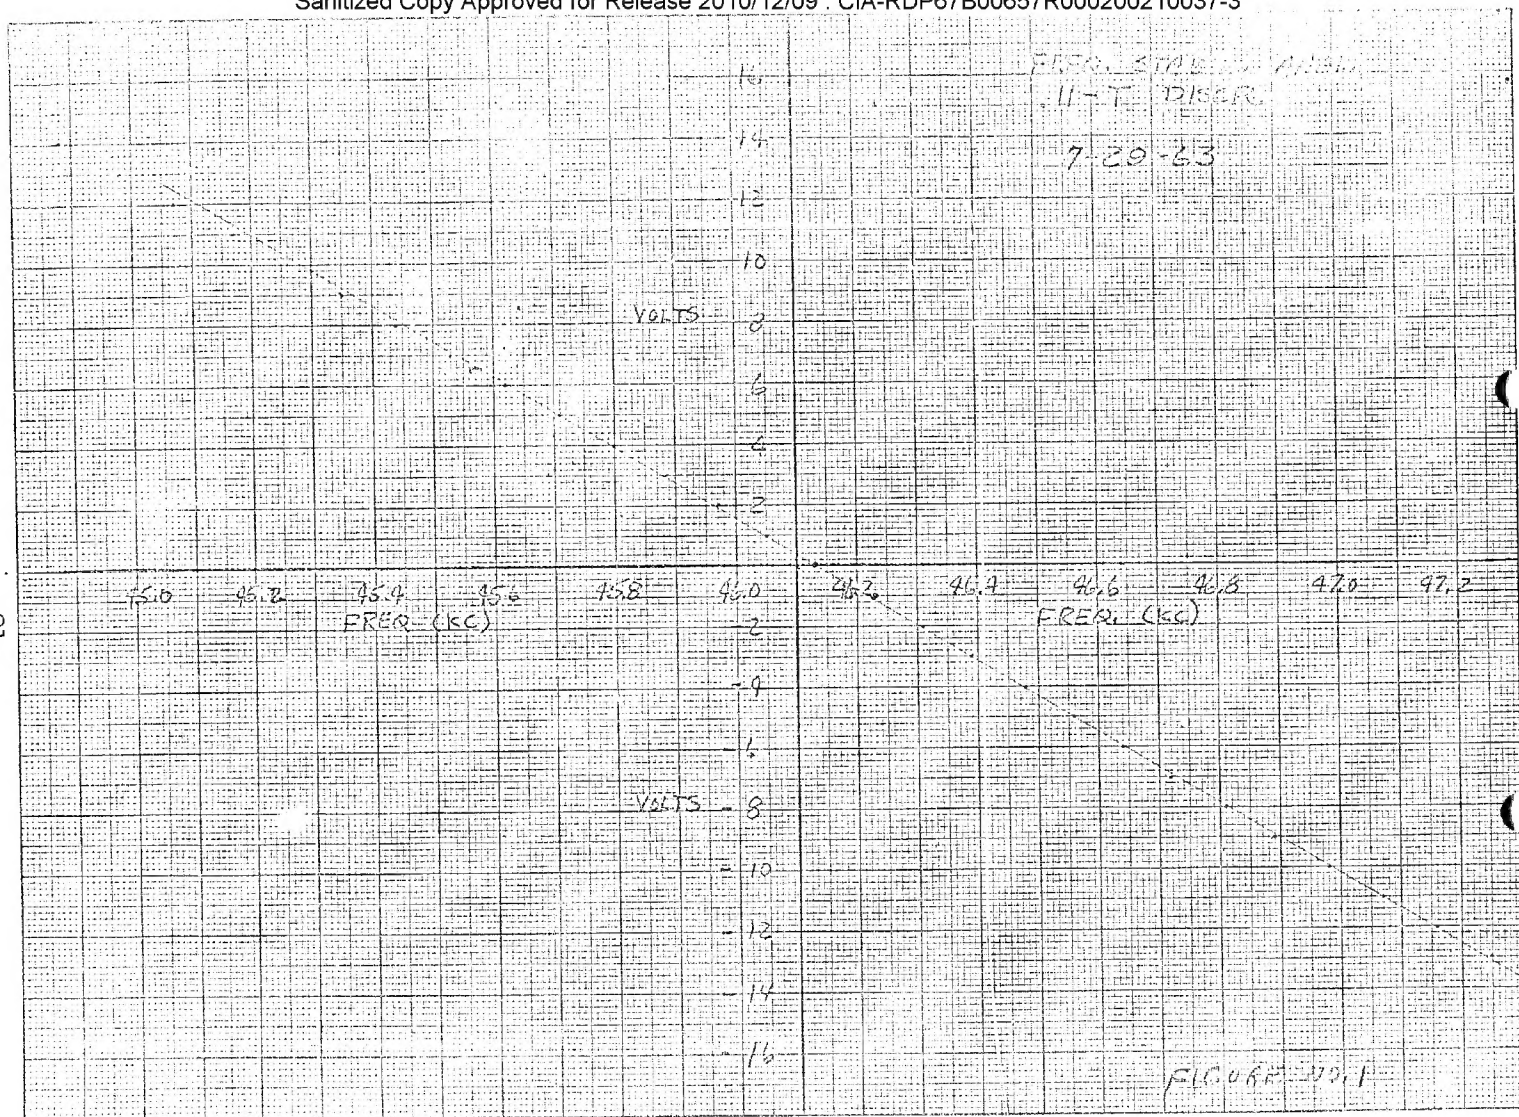 Sanitized Copy Approved for Release 2010/12/09 : CIA-RDP67B00657R000200210037-3
FREQ.
11-T DISCR.
7-29-63
16
14
12
10
VOLTS 8
6
4
2
45.0 45.2 45.4 45.6 45.8 46.0 46.2 46.4 46.6 46.8 47.0 47.2
FREQ (KC) FREQ. (KC)
-2
-4
-6
VOLTS -8
-10
-12
-14
-16
FIGURE NO. 1